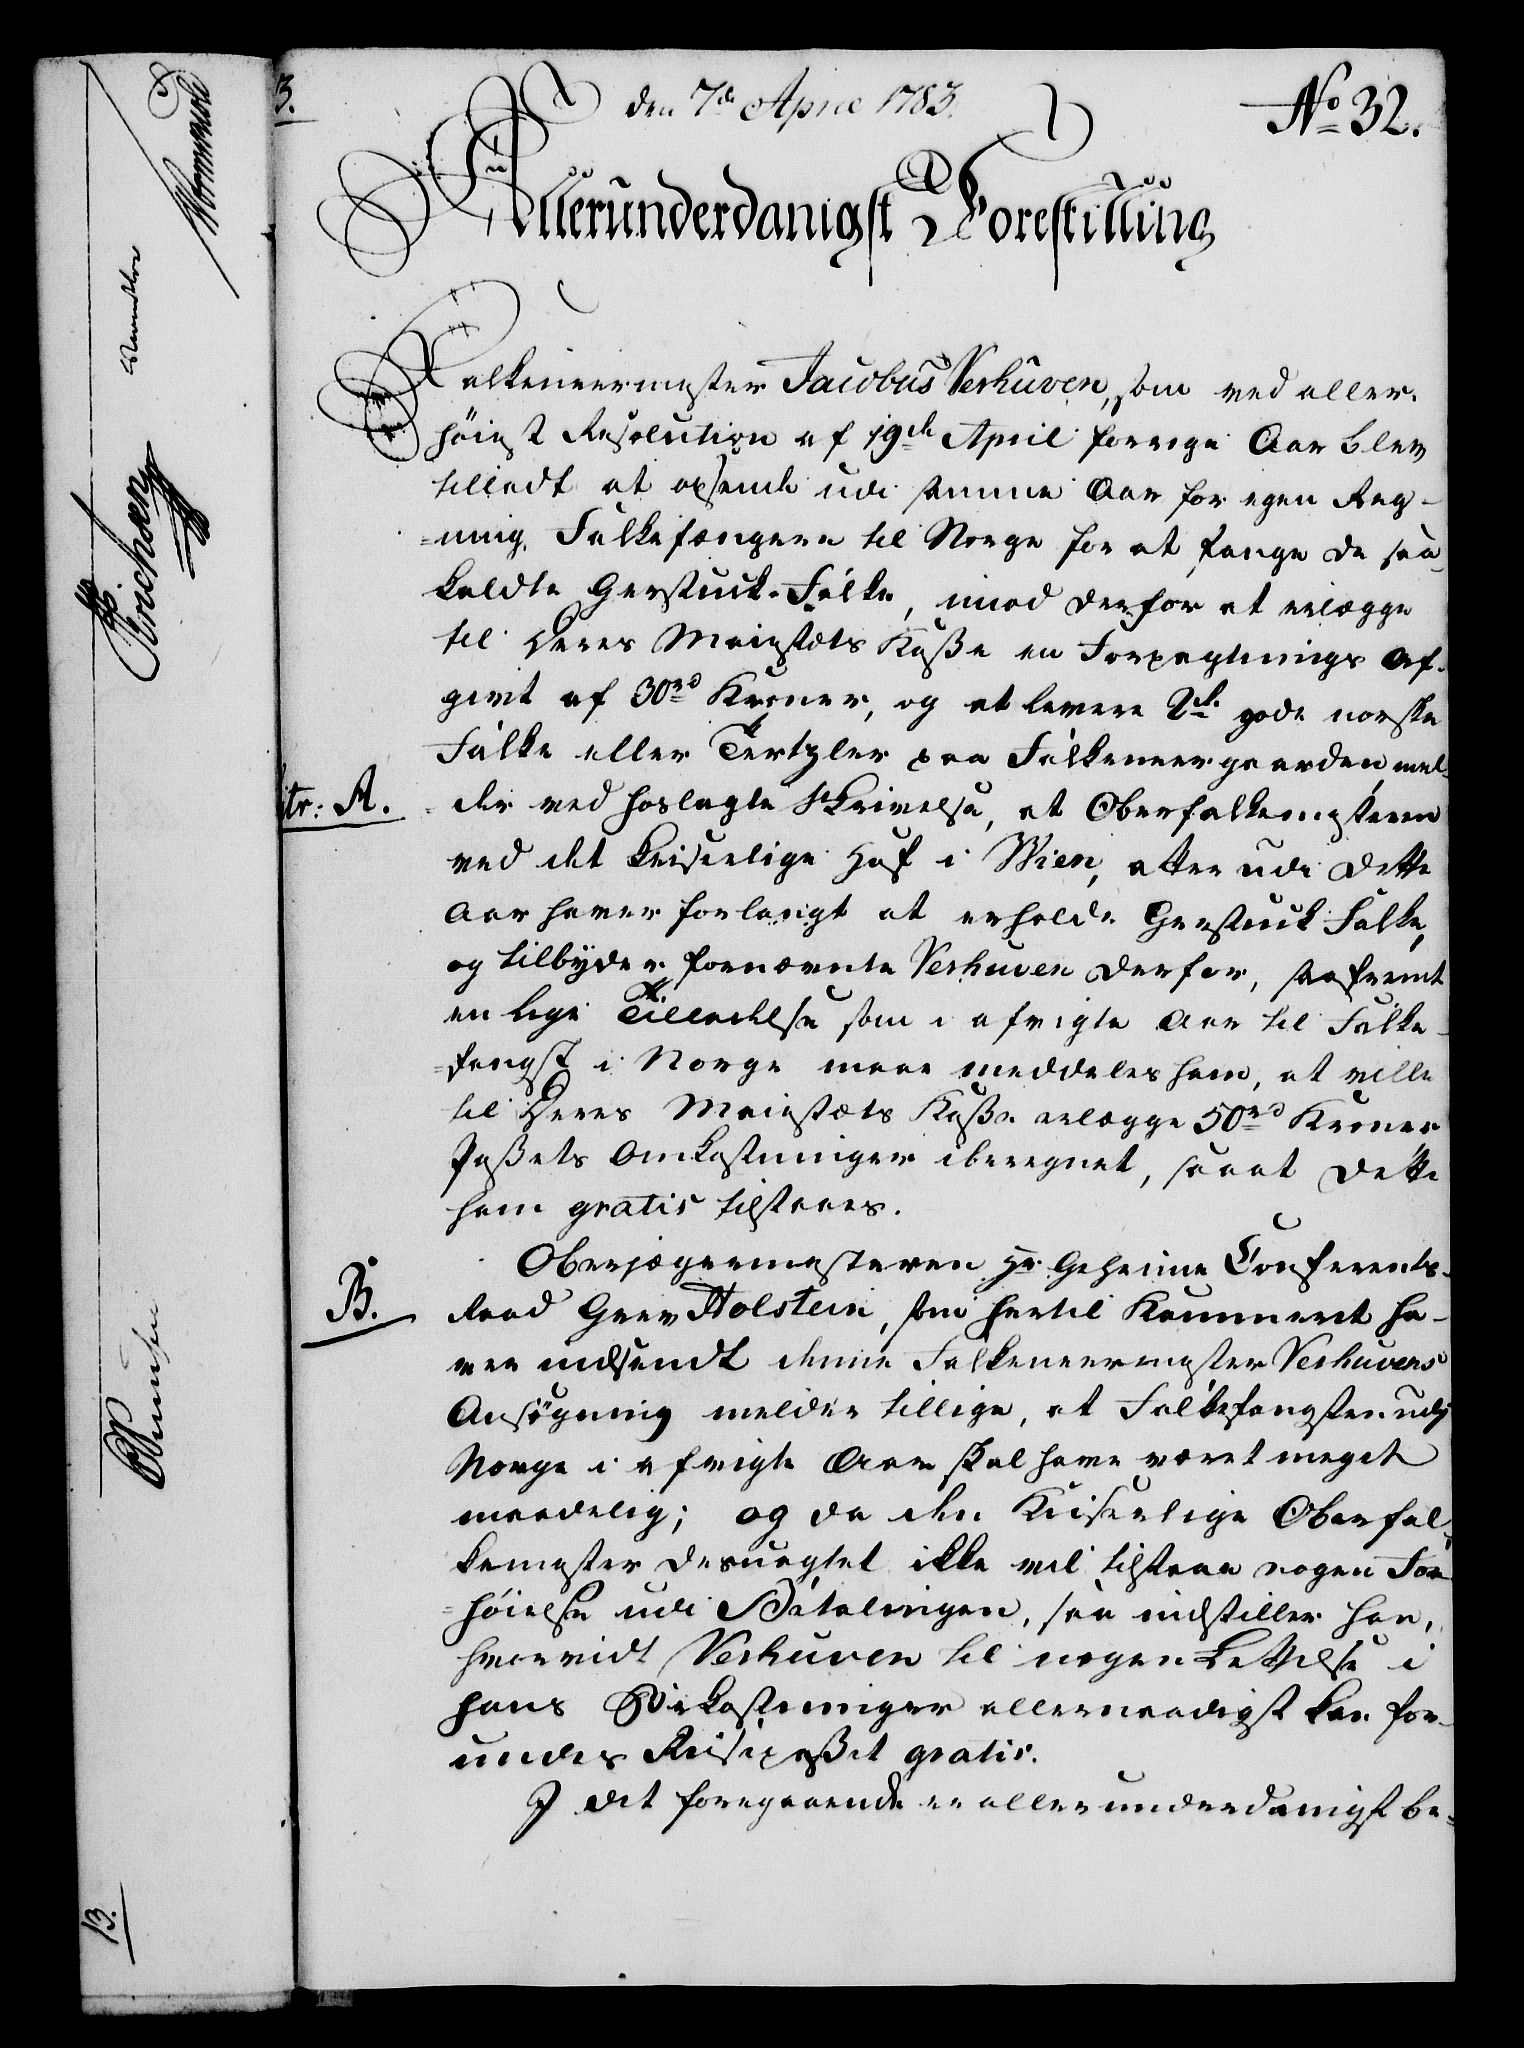 den 7de April 1783.
No 32.
Allerunderdanigst Forestilling
Falkeneermester Jacobus Verhuven, som ved aller-
høiest Resolution af 19de April forrige Aar blev
tilladt at opsende udi samme Aar for egen Reg-
ning, Falkefængere til Norge for at fange de saa
kaldte Gerstuck-Falke, imod derfor at erlægge
til Deres Majestæts Kasse en Forpagtnings Af-
givt af 30rd Kroner, og at levere 2de gode norske
Falke eller Tertzler paa Falkeneergaarden, mel-
tr: A.
der ved hoslagte Skrivelse, at Oberfalkemesteren
ved det keiserlige Hof i Wien, atter udi dette
Aar haver forlangt at erholde Gerstuck Falke,
og tilbyder fornævnte Verhuven derfor, saafremt
en lige Tilladelse som i afvigte Aar til Falke-
fangst i Norge maae meddeles ham, at ville
til Deres Majestæts Kasse erlægge 50rd Kroner
Passets Omkostninger iberegnet, saa at dette
ham gratis tilstaaes.
B.
Oberjægermesteren Hr Geheime Conferents-
Raad Grev Holstein, som hertil Kammeret ha-
ver indsendt denne Falkeneermester Verhuvens
Ansøgning melder tillige, at Falkefangsten udj
Norge i afvigte Aar skal have været meget
maadelig; og da den Keiserlige Oberfal-
kemester desuagtet ikke vil tilstaae nogen For-
høielse udi Betalingen, saa indstiller han,
hvorvidt Verhuven til nogen Lettelse i
hans Bekostninger allernaadigst kan for-
undes Reisepasset gratis.
I det foregaaende er allerunderdanigst be-
3.
Erichsen
13.